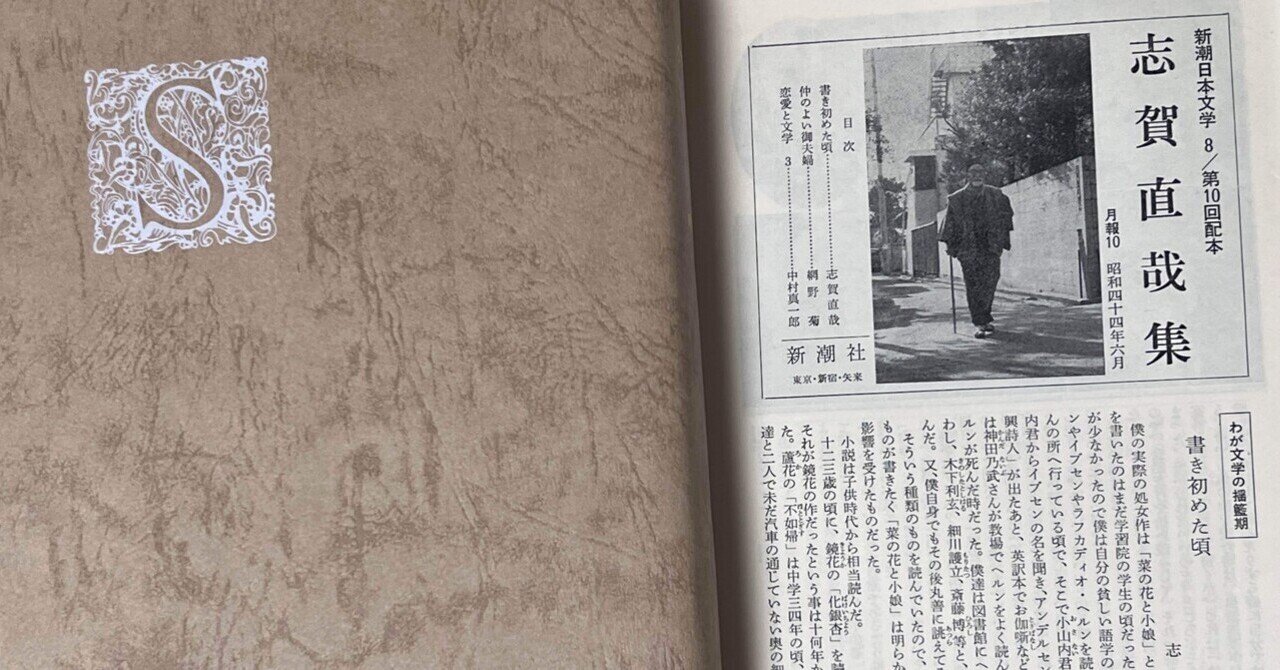 S
新潮日本文学 8／第10回配本
志賀直哉集
月報10 昭和四十四年六月
目次
書き初めた頃……………志賀直哉
仲のよい御夫婦……………網野菊
恋愛と文学 3……………中村真一郎
新潮社
東京・新宿・矢来
わが文学の揺籃期
書き初めた頃
志
僕の実際の処女作は「菜の花と小娘」と
を書いたのはまだ学習院の学生の頃だった
が少なかったので僕は自分の貧しい語学の
ンやイブセンやラフカディオ・ヘルンを読
んの所へ行っている頃で、そこで小山内君
内君からイブセンの名を聞き、アンデルセ
興詩人」が出たあと、英訳本でお伽噺など
は神田乃武さんが教場でヘルンをよく読ん
ルンが死んだ時だった。僕達は図書館にヘ
わし、木下利玄、細川護立、斎藤博等と、
んだ。又、僕自身でもその後丸善に誂えて
そういう種類のものを読んでいたので、
ものが書きたく「菜の花と小娘」は明らか
影響を受けたものだった。
小説は子供時代から相当読んだ。
十二三歳の頃に、鏡花の「化銀杏」を読
それが鏡花の作だったという事は十何年か
た。蘆花の「不如帰」は中学三四年の頃、
達と二人で未だ汽車の通じていない奥の細